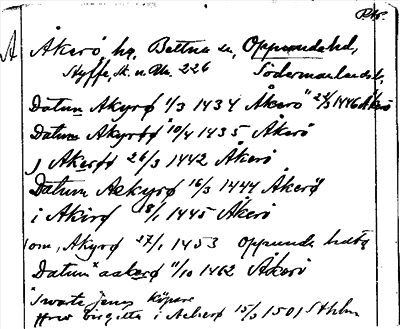 A Åkerö hg, Bettna sn, Oppundahd,
Styffe, St. u. Un. 226 Södermanlands l.
Datum Akyrø 1/3 1434 Åkerö 24/3 1446 Åkerö
Datum Akyrøø 10/4 1435 Åkerö
j Akerøø 26/3 1442 Åkerö
Datum Aekyrø 16/3 1444 Åkerö
i Akirø 18/1 1445 Åkerö
om, Akyrø 27/1 1453 Oppunda
Datum aakerø 11/10 1462 Åkerö
Swarte Jenes
Hrw birgitta i Aakerø 15/3 1501 Sthlm